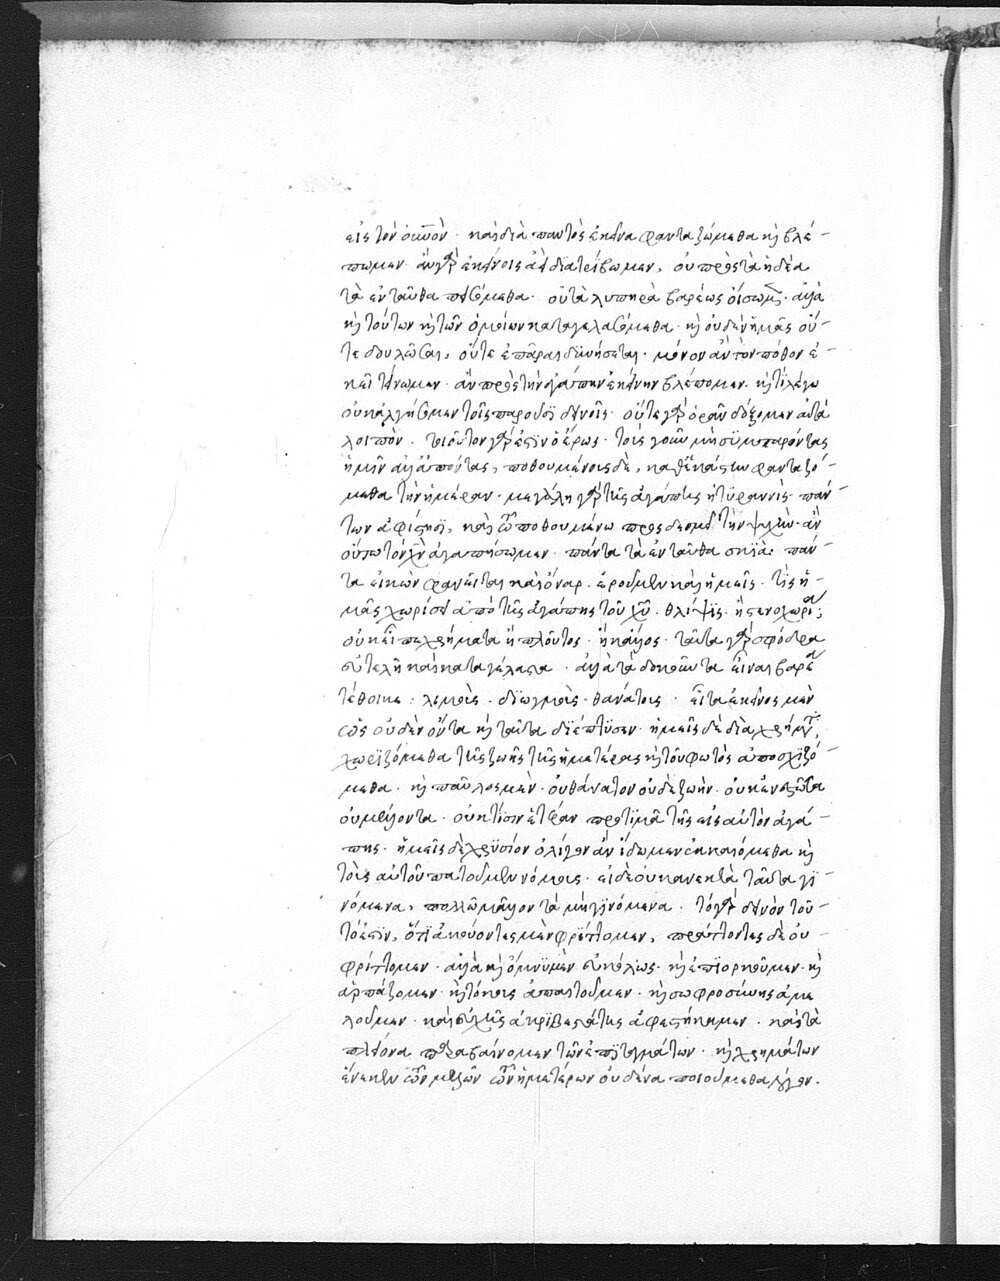 εἰς τὸν οὐνὸν· καὶ διὰ παντὸς ἐκεῖνα φανταζώμεθα κ βλέ-
πωμεν· ἂν γὰρ ἐκείνοις ἀεὶ διατρίβωμεν, οὐ πρὸς τὰ ἡδέα
τὰ ἐνταῦθα πεισόμεθα· οὐ τὰ λυπηρὰ βαρέως οἴσωμεν· ἀλλὰ
κ τούτων κ τῶν ὁμοίων καταγελασόμεθα· κ οὐδὲν ἡμᾶς οὔ-
τε δουλῶσαι, οὔτε ἐπᾶραι δυνήσεται· μόνον ἂν τὸν πόθον ἐ-
κεῖ τείνωμεν· ἂν πρὸς τὴν ἀγάπην ἐκείνην βλέπομεν· κ τί λέγω
οὐκ ἀλγήσομεν τοῖς παροῦσι δεινοῖς· οὔτε γὰρ ὁρᾶν δόξομεν αὐτὰ
λοιπὸν· τοιοῦτον γάρ ἐστιν ὁ ἔρως· τοὺς γοῦν μὴ συμπαρόντας
ἡμῖν ἀλλ' ἀπόντας, ποθουμένους δὲ, καθ' ἑκάστην φανταζό-
μεθα τὴν ἡμέραν· μεγάλη γὰρ τῆς ἀγάπης ἡ τυραννὶς· πάν-
των ἀφίστησι, καὶ τῶ ποθουμένω προσδεσμεῖ τὴν ψυχὴν· ἂν
οὕτω τὸν χν ἀγαπήσωμεν· πάντα τὰ ἐνταῦθα σκιὰ· πάν-
τα εἰκὼν φανεῖται καὶ ὄναρ· ἐροῦμεν καὶ ἡμεῖς· τίς ἡ-
μᾶς χωρίσει ἀπὸ τῆς ἀγάπης τοῦ χυ· θλίψις· ἢ στενοχωρία;
οὐκ εἶπε χρήματα ἢ πλοῦτος· ἢ κάλλος· ταῦτα γὰρ σφόδρα
εὐτελῆ καὶ καταγέλαστα· ἀλλὰ τὰ δοκοῦντα εἶναι βαρέα
τέθεικε· λιμοὺς· διωγμοὺς· θανάτους· εἶτα ἐκεῖνος μὲν
ὡς οὐδὲν ὄντα κ ταῦτα διέπτυσεν· ἡμεῖς δὲ διὰ χρήματα,
χωριζόμεθα τῆς ζωῆς τῆς ἡμετέρας κ τοῦ φωτὸς ἀποσχιζό-
μεθα· κ παῦλος μὲν· οὐ θάνατον οὐδὲ ζωὴν· οὐκ ἐνεστῶτα
οὐ μέλλοντα· οὐ κτίσιν ἑτέραν προτιμᾶ τῆς εἰς αὐτὸν ἀγά-
πης· ἡμεῖς δὲ χρυσίον ὀλίγον ἂν ἴδωμεν ἐκκαιόμεθα κ
τοὺς αὐτοῦ πατοῦμεν νόμους· εἰ δὲ οὐκ ἀνεκτὰ ταῦτα γι-
νόμενα, πολλῶ μᾶλλον τὰ μὴ γινόμενα· τὸ γὰρ δεινὸν τοῦ-
τό ἐστιν, ὅτι ἀκούοντες μὲν φρίττομεν, πράττοντες δὲ οὐ-
φρίττομεν· ἀλλὰ κ ὄμνυμεν εὐκόλως· κ ἐπιορκοῦμεν· κ
ἁρπάζομεν· κ τόκους ἀπαιτοῦμεν· κ σωφροσύνης ἀμε
λοῦμεν· καὶ εὐχῆς ἀκριβεστάτης ἀφεστήκαμεν· καὶ τὰ
πλείονα παραβαίνομεν τῶν ἐπιταγμάτων· κ χρημάτων
ἕνεκεν τῶν μελῶν τῶν ἡμετέρων οὐδένα ποιούμεθα λόγον.